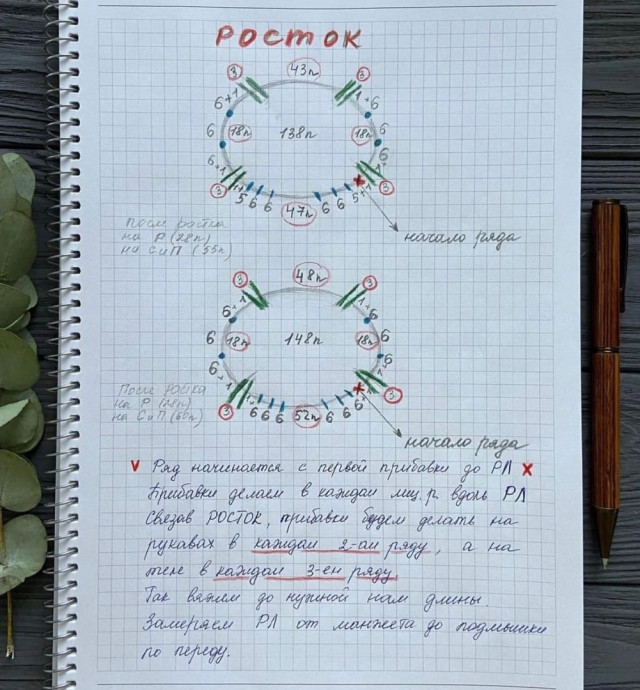 РОСТОК
3 43п 3
6+1 1+6
6 18п 138п 18п 6
6+1 6
3 1+5 6 6 47п 6 6 5+1 3
После ростка
на Р (28п)
на СиП (55п)
начало ряда
3 48п 3
6+1 1+6
6 18п 148п 18п 6
6+1 1+6
3 1+6 6 6 52п 6 6 6+1 3
После ростка
на Р (28п)
на СиП (60п)
начало ряда
v Ряд начинается с первой прибавки до РЛ x
Прибавки делаем в каждом лиц. р. вдоль РЛ
Связав РОСТОК, прибавки будем делать на
рукавах в каждом 2-ом ряду, а на
теле в каждом 3-ем ряду.
Так вяжем до нужной нам длины.
Замеряем РЛ от манжета до подмышки
по переду.